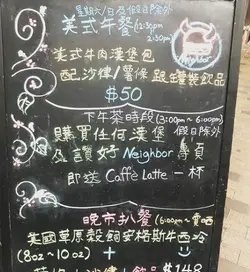 星期六/日及假日除外
美式午餐 (12:30pm 2:30pm)
Neighbor
美式牛肉漢堡包
配沙律/薯條 跟罐裝飲品
$50
下午茶時段 (3:00pm ~ 6:00pm)
購買任何漢堡 假日除外
及讚好 Neighbor 專頁
即送 Caffè Latte 一杯
晚市扒餐 (6:00pm~
美國草原穀飼安格斯牛西冷
(8oz ~ 10oz) +
$148